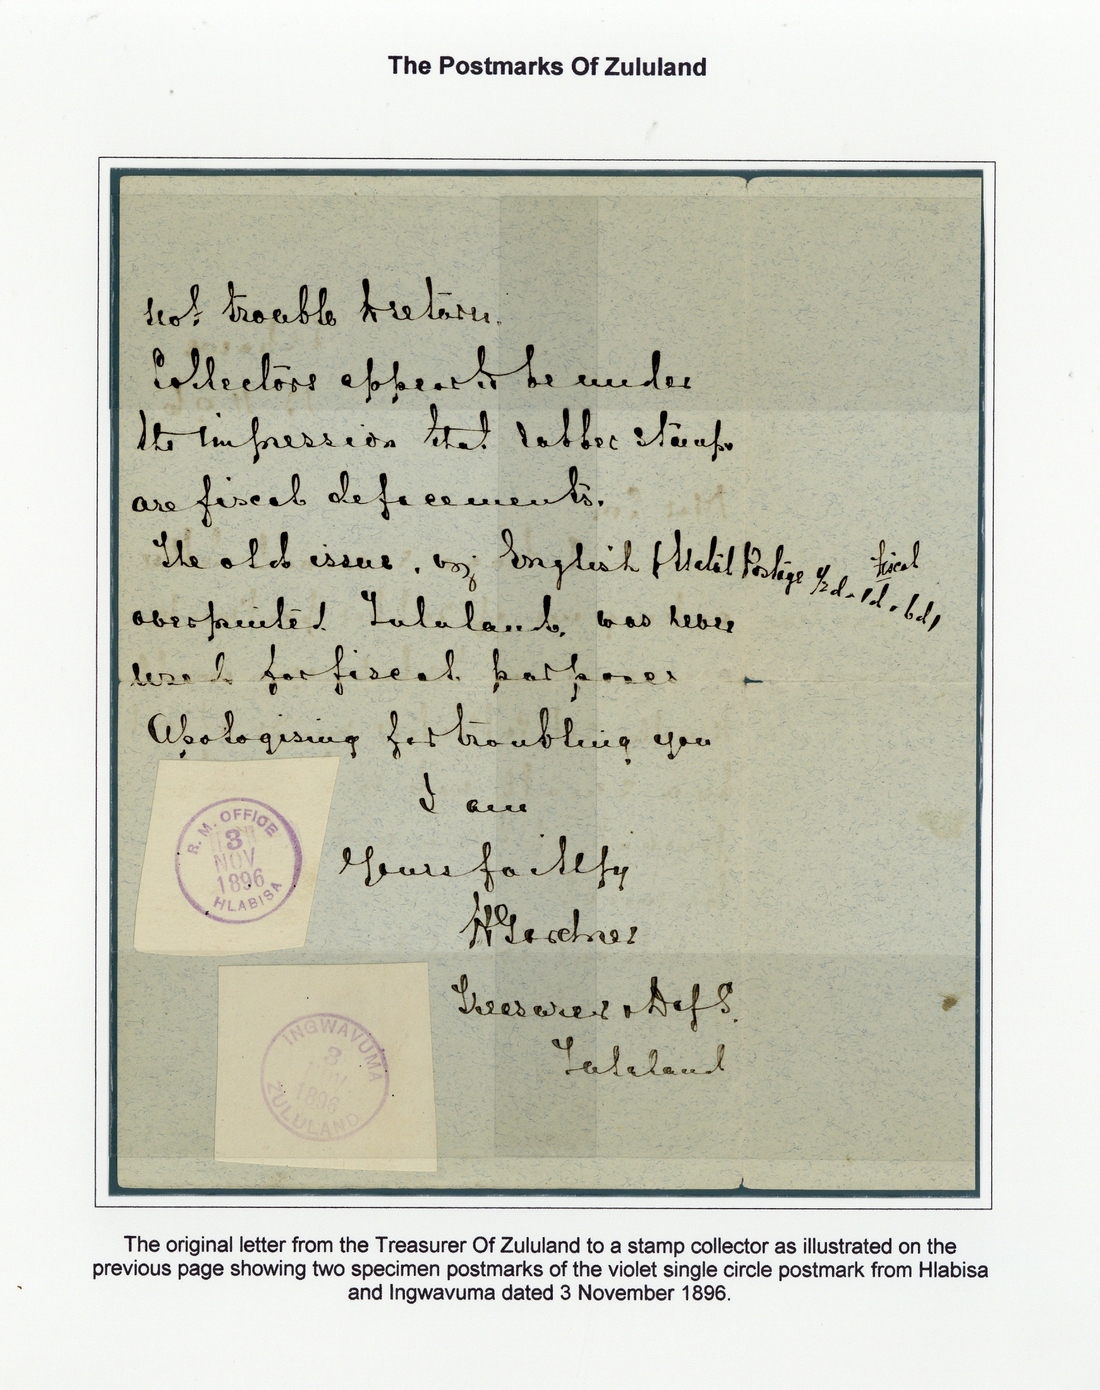 The Postmarks Of Zululand
not trouble to return.
Collectors appear to be under
the impression that rubber stamps
are fiscal defacements.
The old issue, viz English (& Natal Postage ½d. 1d. 6d) fiscal
overprinted Zululand, was never
used for fiscal purposes
Apologising for troubling you
I am
Yours faithfy
Gardner
Treasurer
Zululand
R. M. OFFICE
3
NOV
1896
HLABISA
INGWAVUMA
3
1896
ZULULAND
The original letter from the Treasurer Of Zululand to a stamp collector as illustrated on the
previous page showing two specimen postmarks of the violet single circle postmark from Hlabisa
and Ingwavuma dated 3 November 1896.